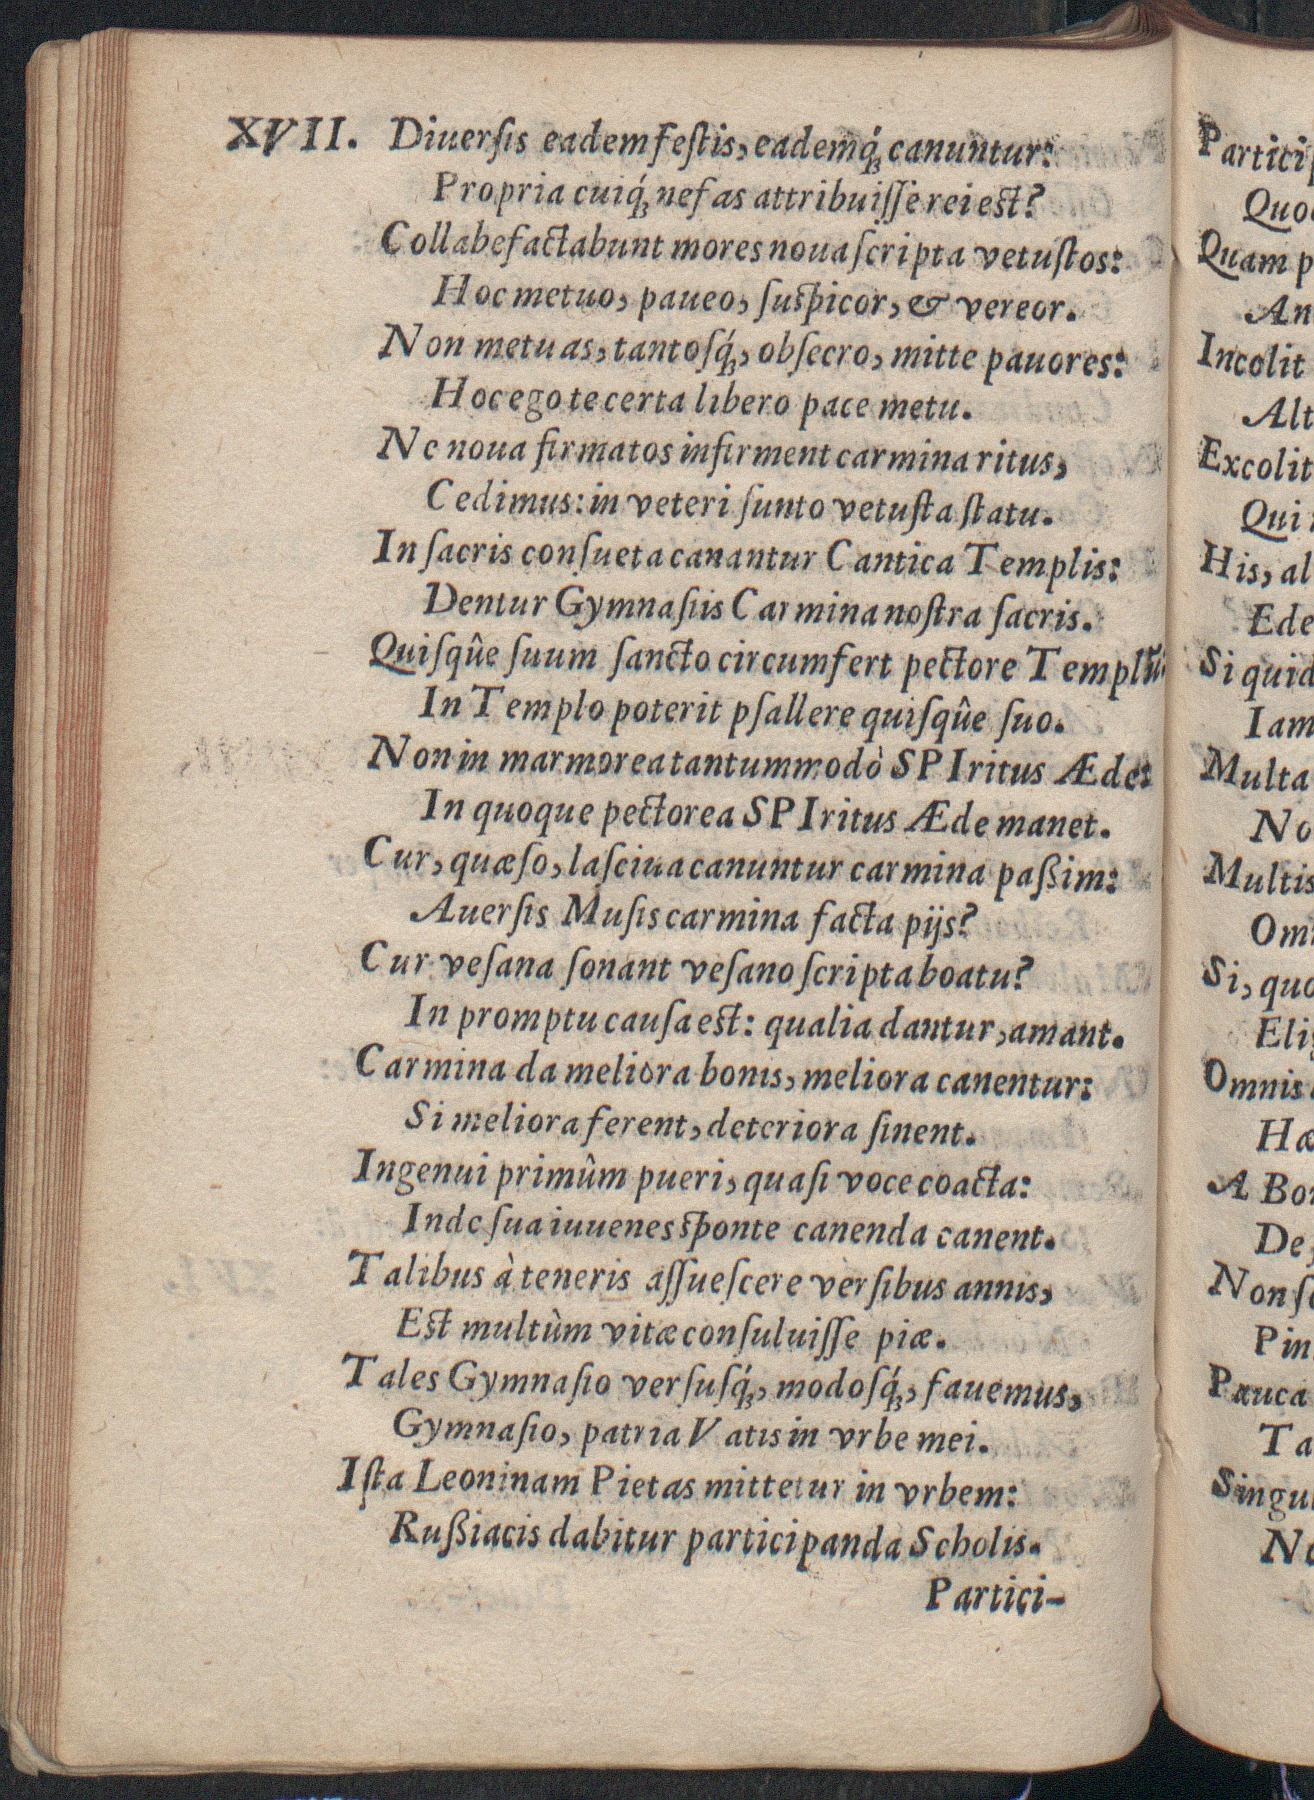 XVII. Diuerſis eadem feſtis, eademq́ꝫ canuntur:
Propria cuiq́ꝫ nefas attribuiſſe rei est?
Collabefactabunt mores noua ſcripta vetuſtos:
Hoc metuo, paueo, ſuspicor, & vereor.
Non metuas, tantoſq́ꝫ, obſecro, mitte pauores:
Hoc ego te certa libero pace metu.
Ne noua firmatos infirment carmina ritus,
Cedimus: in veteri ſunto vetuſta ſtatu.
In ſacris conſueta canantur Cantica Templis:
Dentur Gymnaſiis Carmina noſtra ſacris.
Quiſqûe ſuum ſancto circumfert pectore Templū:
In Templo poterit pſallere quiſqûe ſuo.
Non in marmorea tantummodò SPIritus Æde:
In quoque pectorea SPIritus Æde manet.
Cur, quæſo, laſciua canuntur carmina paßim:
Auerſis Muſis carmina facta pijs?
Cur veſana ſonant veſano ſcripta boatu?
In promptu cauſa est: qualia dantur, amant.
Carmina da meliora bonis, meliora canentur:
Si meliora ferent, deteriora ſinent.
Ingenui primûm pueri, quaſi voce coacta:
Inde ſua iuuenes sponte canenda canent.
Talibus à teneris aſſueſcere verſibus annis,
Est multùm vitæ conſuluiſſe piæ.
Tales Gymnaſio verſuſq́ꝫ, modoſq́ꝫ, fauemus,
Gymnaſio, patria Vatis in vrbe mei.
Iſta Leoninam Pietas mittetur in vrbem:
Rußiacis dabitur participanda Scholis.
Partici-
Particip
Quo
Quam p
An
Incolit
Alt
Excolit
Qui
His, al
Ede
Si quid
Iam
Multa
No
Multis
Om
Si, quo
Elig
Omnis
Hæ
A Bo
De
Non ſ
Pin
Pauca
Ta
Singul